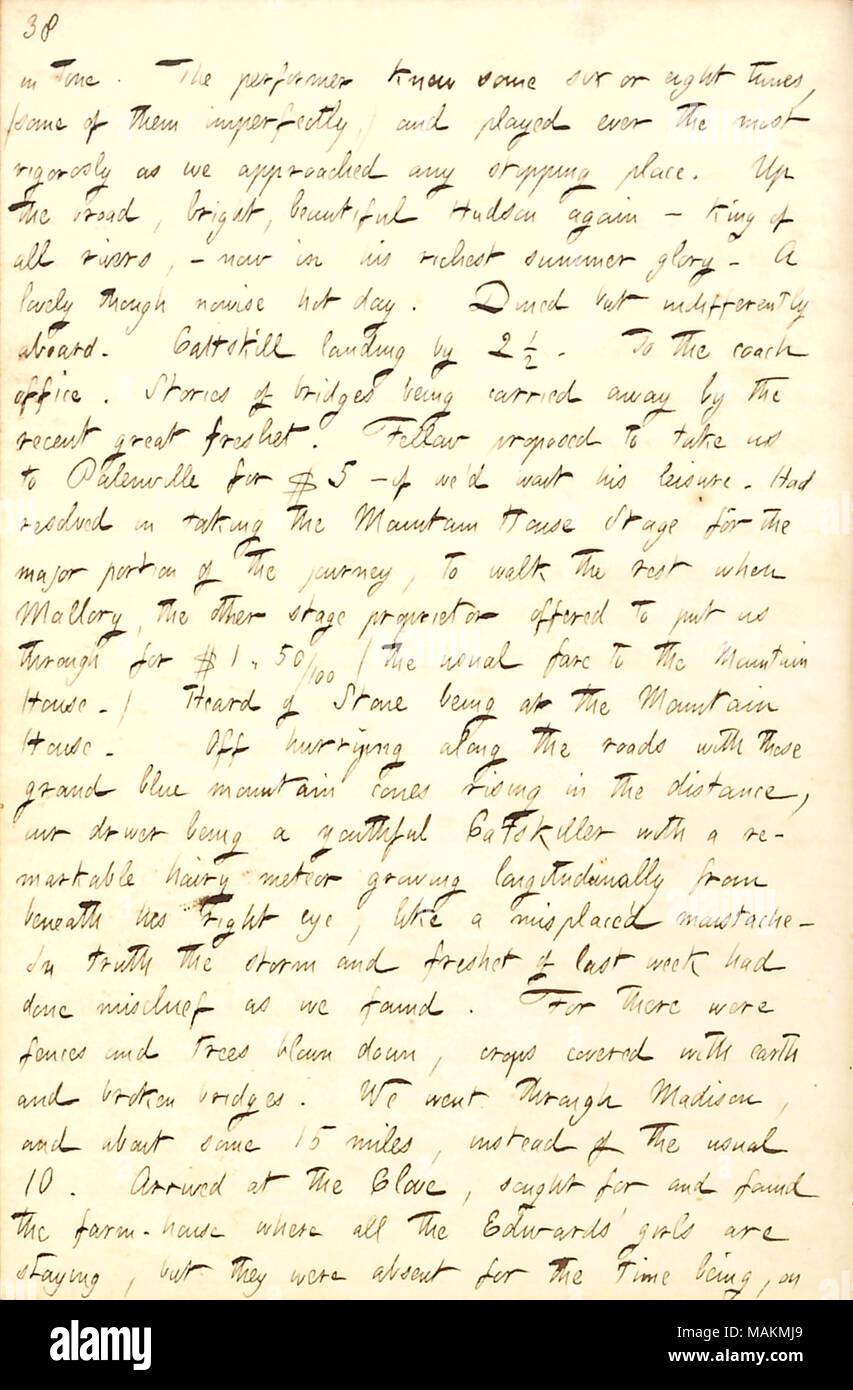 38
in tone. The performer knew some six or eight tunes,
(some of them imperfectly,) and played ever the most
vigorosly as we approached any stopping place. Up
the broad, bright, beautiful Hudson again — king of
all rivers, — now in his richest summer glory — A
lovely though nowise hot day. Dined but indifferently
aboard. Cattskill landing by 2 ½. To the coach
office. Stories of bridges being carried away by the
recent great freshet. Fellow proposed to take us
to Palenville for $5 — if we'd wait his leisure. Had
resolved on taking the Mountain House Stage for the
major portion of the journey, to walk the rest when
Mallory, the other stage proprietor offered to put us
through for $1.50/100 (the usual fare to the Mountain
House.) Heard of Stone being at the Mountain
House. Off hurrying along the roads with those
grand blue mountain cones rising in the distance,
our driver being a youthful Catskiller with a re-
markable hairy meteor growing longitudinally from
beneath his right eye, like a misplaced moustache —
In truth the storm and freshet of last week had
done mischief as we found. For there were
fences and trees blown down, crops covered with earth
and broken bridges. We went through Madison,
and about some 15 miles, instead of the usual
10. Arrived at the Clove, sought for and found
the farm-house where all the Edwards' girls are
staying, but they were absent for the time being, on
alamy
Image ID: MAKMJ9
www.alamy.com